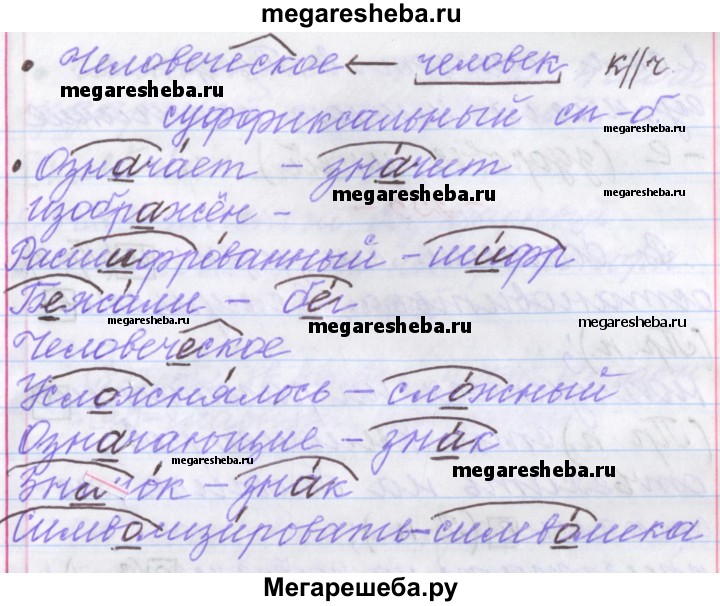 megaresheba.ru
• Человеческое ← человек к//ч
megaresheba.ru
суффиксальный сп-б. megaresheba.ru
• Означает – значит
megaresheba.ru
изображён -
Расшифрованный – шифр
Бежали – бег
megaresheba.ru megaresheba.ru megaresheba.ru
Человеческое
Усложнялось – сложный
Означающие – знак
megaresheba.ru megaresheba.ru megaresheba.ru
Значок – знак
Символизировать – символика
Мегарешеба.ру